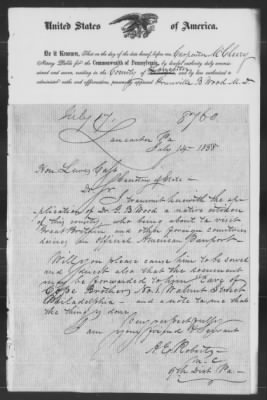 United States of America.
Be it Known, That on the day of the date hereof before me Carpenter McCleery
Notary Public for the Commonwealth of Pennsylvania, by lawful authority duly commissioned
and sworn, residing in the County of Lancaster, and by law authorized to
administer oaths and affirmations, personally appeared Granville B Wood M.D
July 17. 8760
Lancaster Pa
July 14th 1858
Hon. Lewis Cass
Secretary of State
Dr Sir
I transmit herewith the ap-
plication of Dr. G. B Wood a native citizen
of this country, who being about to visit
Great Britain and other foreign countries
desires an official American Passport.
Will you please cause him to be served
and direct also that the document
may be forwarded to him Care of
Cope Brothers No. 1 Walnut Street
Philadelphia — and a note to me that
the thing is done
Very respectfully
I am your friend & servant
A. E. Roberts
M. C
9th Dist Pa